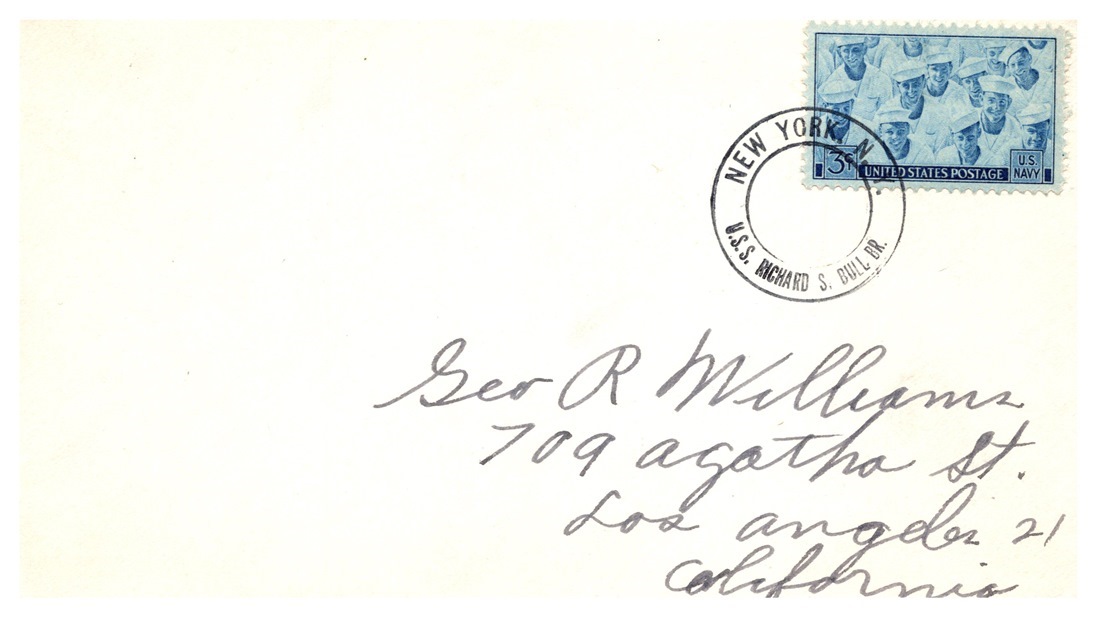 3¢
UNITED STATES POSTAGE
U.S.
NAVY
NEW YORK, N.Y.
U.S.S. RICHARD S. BULL BR.
Geo R Williams
709 agatha St.
Los angeles 21
California